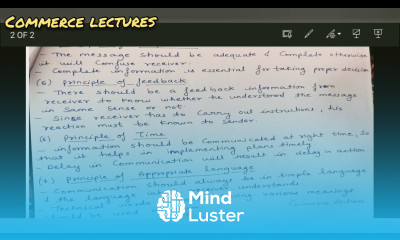 COMMERCE LECTURES
2 OF 2
- The message should be adequate & Complete otherwise
it will Confuse receiver.
- Complete information is essential for taking proper decision
(5) Principle of feedback
- There should be a feedback information from
receiver to know whether he understood the message
in Same Sense or not.
- Since receiver has to Carry out instructions, his
reaction must be known to sender.
(6) Principle of Time
- information should be Communicated at right time, So
that it helps in implementing plans timely
Delay in Communication will result in delay in action
(7) Principle of Appropriate Language
- Communication should always be in Simple language
& the language understands
- Technical words various meanings
should be used
Mind
Luster